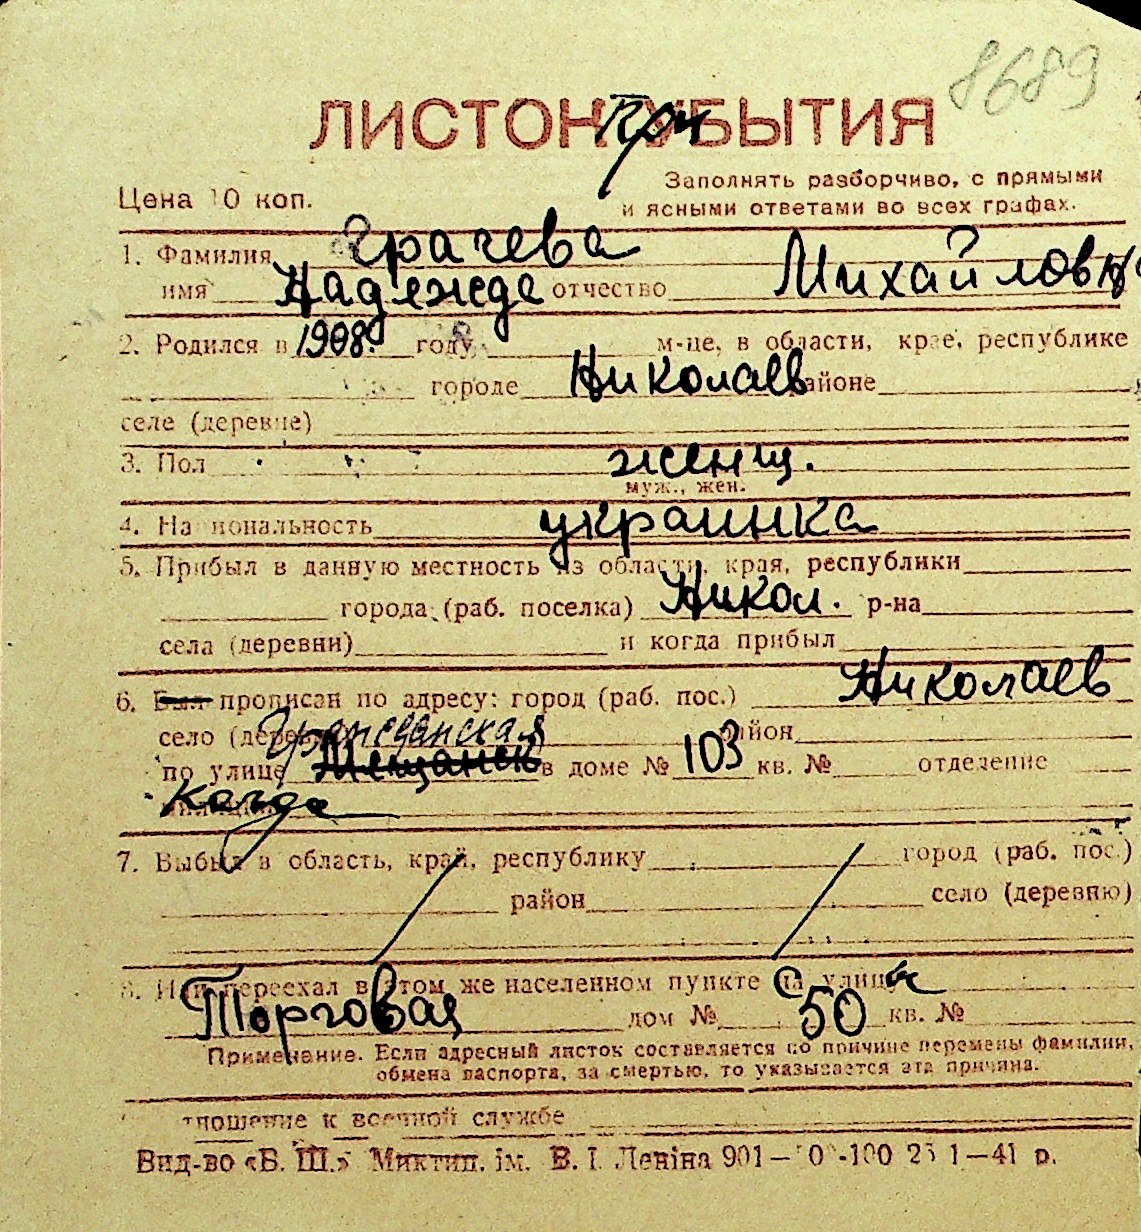 8689
ЛИСТОК УБЫТИЯ
При
Цена 10 коп.
Заполнять разборчиво, с прямыми
и ясными ответами во всех графах.
1. Фамилия Грачева
имя Надежда отчество Михайловна
2. Родился в 1908. году м-це, в области, крае, республике
городе Николаев районе
селе (деревне)
3. Пол женщ.
муж., жен.
4. Национальность украинка
5. Прибыл в данную местность из области, края, республики
города (раб. поселка) Никол. р-на
села (деревни) и когда прибыл
6. Был прописан по адресу: город (раб. пос.) Николаев
село (деревня) Гражданская район
по улице Мещанск в доме № 103 кв. № отделение
когда
7. Выбыл в область, край, республику город (раб. пос.)
район село (деревню)
8. Или переехал в этом же населенном пункте на улицу
с
Торговая дом № 50 кв. №
Примечание. Если адресный листок составляется по причине перемены фамилии,
обмена паспорта, за смертью, то указывается эта причина.
тношение к военной службе
Вид-во «Б. Ш.» Миктип. ім. В. І. Леніна 901— -100 1—41 р.